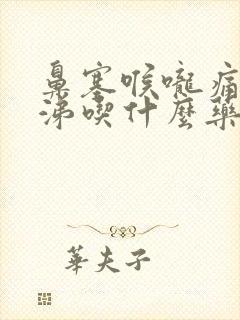 鼻塞喉嚨痛
涕喫什麼藥
華夫子